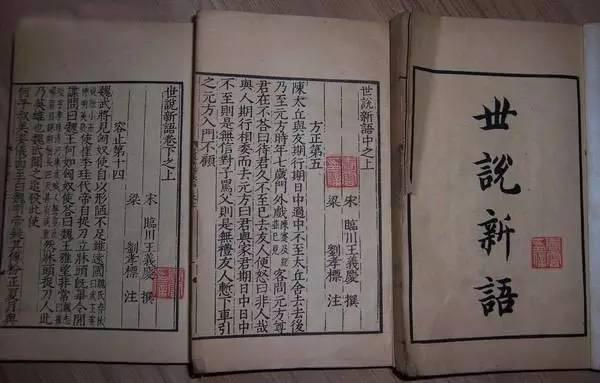 世說新語
世說新語中之上
宋 臨川王義慶 撰
梁 劉孝標 注
方正第五
陳太丘與友期行期日中過中不至太丘舍去去後
乃至元方時年七歲門外戲陳寔及紀並已見客問元方尊
君在不答曰待君久不至已去友人便怒曰非人哉
與人期行相委而去元方曰君與家君期日中日中
不至則是無信對子罵父則是無禮友人慙下車引
之元方入門不顧
世說新語卷下之上
宋 臨川王義慶 撰
梁 劉孝標 注
容止第十四
魏武將見匈奴使自以形陋不足雄遠國魏氏春秋曰武王姿
貌短小而神明英發使崔季珪代帝自捉刀立牀頭既畢令間
諜問曰魏王何如匈奴使答曰魏王雅望非常
然牀頭捉刀人此
乃英雄也魏武聞之追殺此使
何平叔美姿儀面至白魏明帝疑其傅粉正夏月與